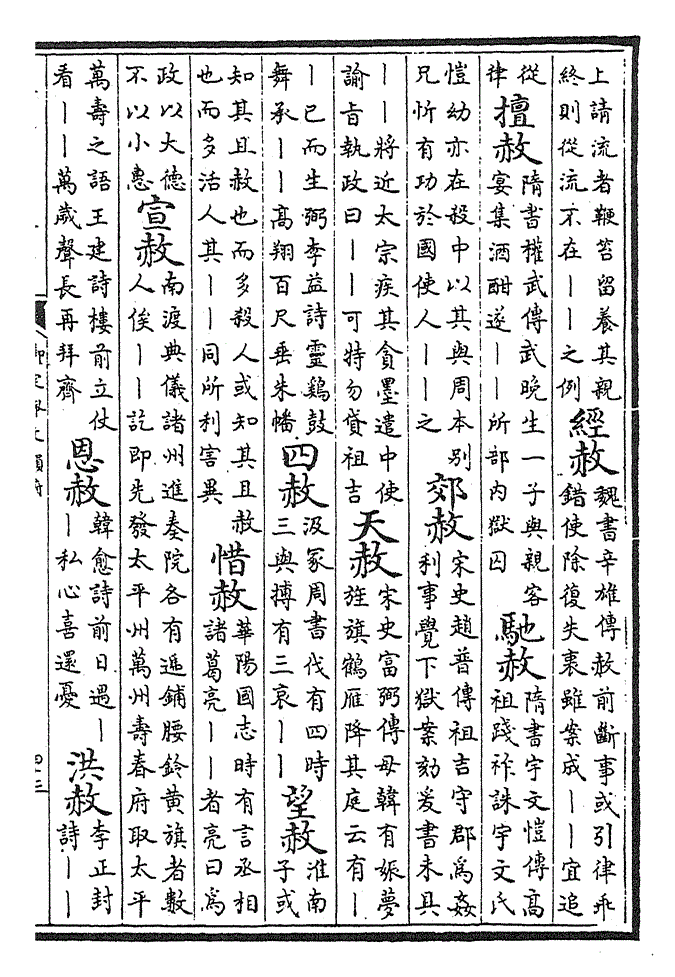 上請流者鞭笞留養其親
終則從流不在丨丨之例
經赦
魏書辛雄傳赦前斷事或引律乖
錯使除復失衷雖案成丨丨宜追
從
律
擅赦
隋書權武傳武晚生一子與親客
宴集酒酣遂丨丨所部內獄囚
馳赦
隋書宇文愷傳高
祖踐祚誅宇文氏
愷幼亦在殺中以其與周本別
兄忻有功於國使人丨丨之
郊赦
宋史趙普傳祖吉守郡爲姦
利事覺下獄案劾爰書未具
丨丨將近太宗疾其貪墨遣中使
諭旨執政曰丨丨可特勿貸祖吉
天赦
宋史富弼傳母韓有娠夢
旌旗鶴雁降其庭云有丨
丨已而生弼李益詩靈鷄鼓
舞承丨丨高翔百尺垂朱幡
四赦
汲冢周書伐有四時
三與搏有三哀丨丨
望赦
淮南
子或
知其且赦也而多殺人或知其且赦
也而多活人其丨丨同所利害異
惜赦
華陽國志時有言丞相
諸葛亮丨丨者亮曰爲
政以大德
不以小惠
宣赦
南渡典儀諸州進奏院各有遞鋪腰鈴黃旗者數
人俟丨丨訖即先發太平州萬州壽春府取太平
萬壽之語王建詩樓前立仗
看丨丨萬歲聲長再拜齊
恩赦
韓愈詩前日遇丨
丨私心喜還憂
洪赦
李正封
詩丨丨